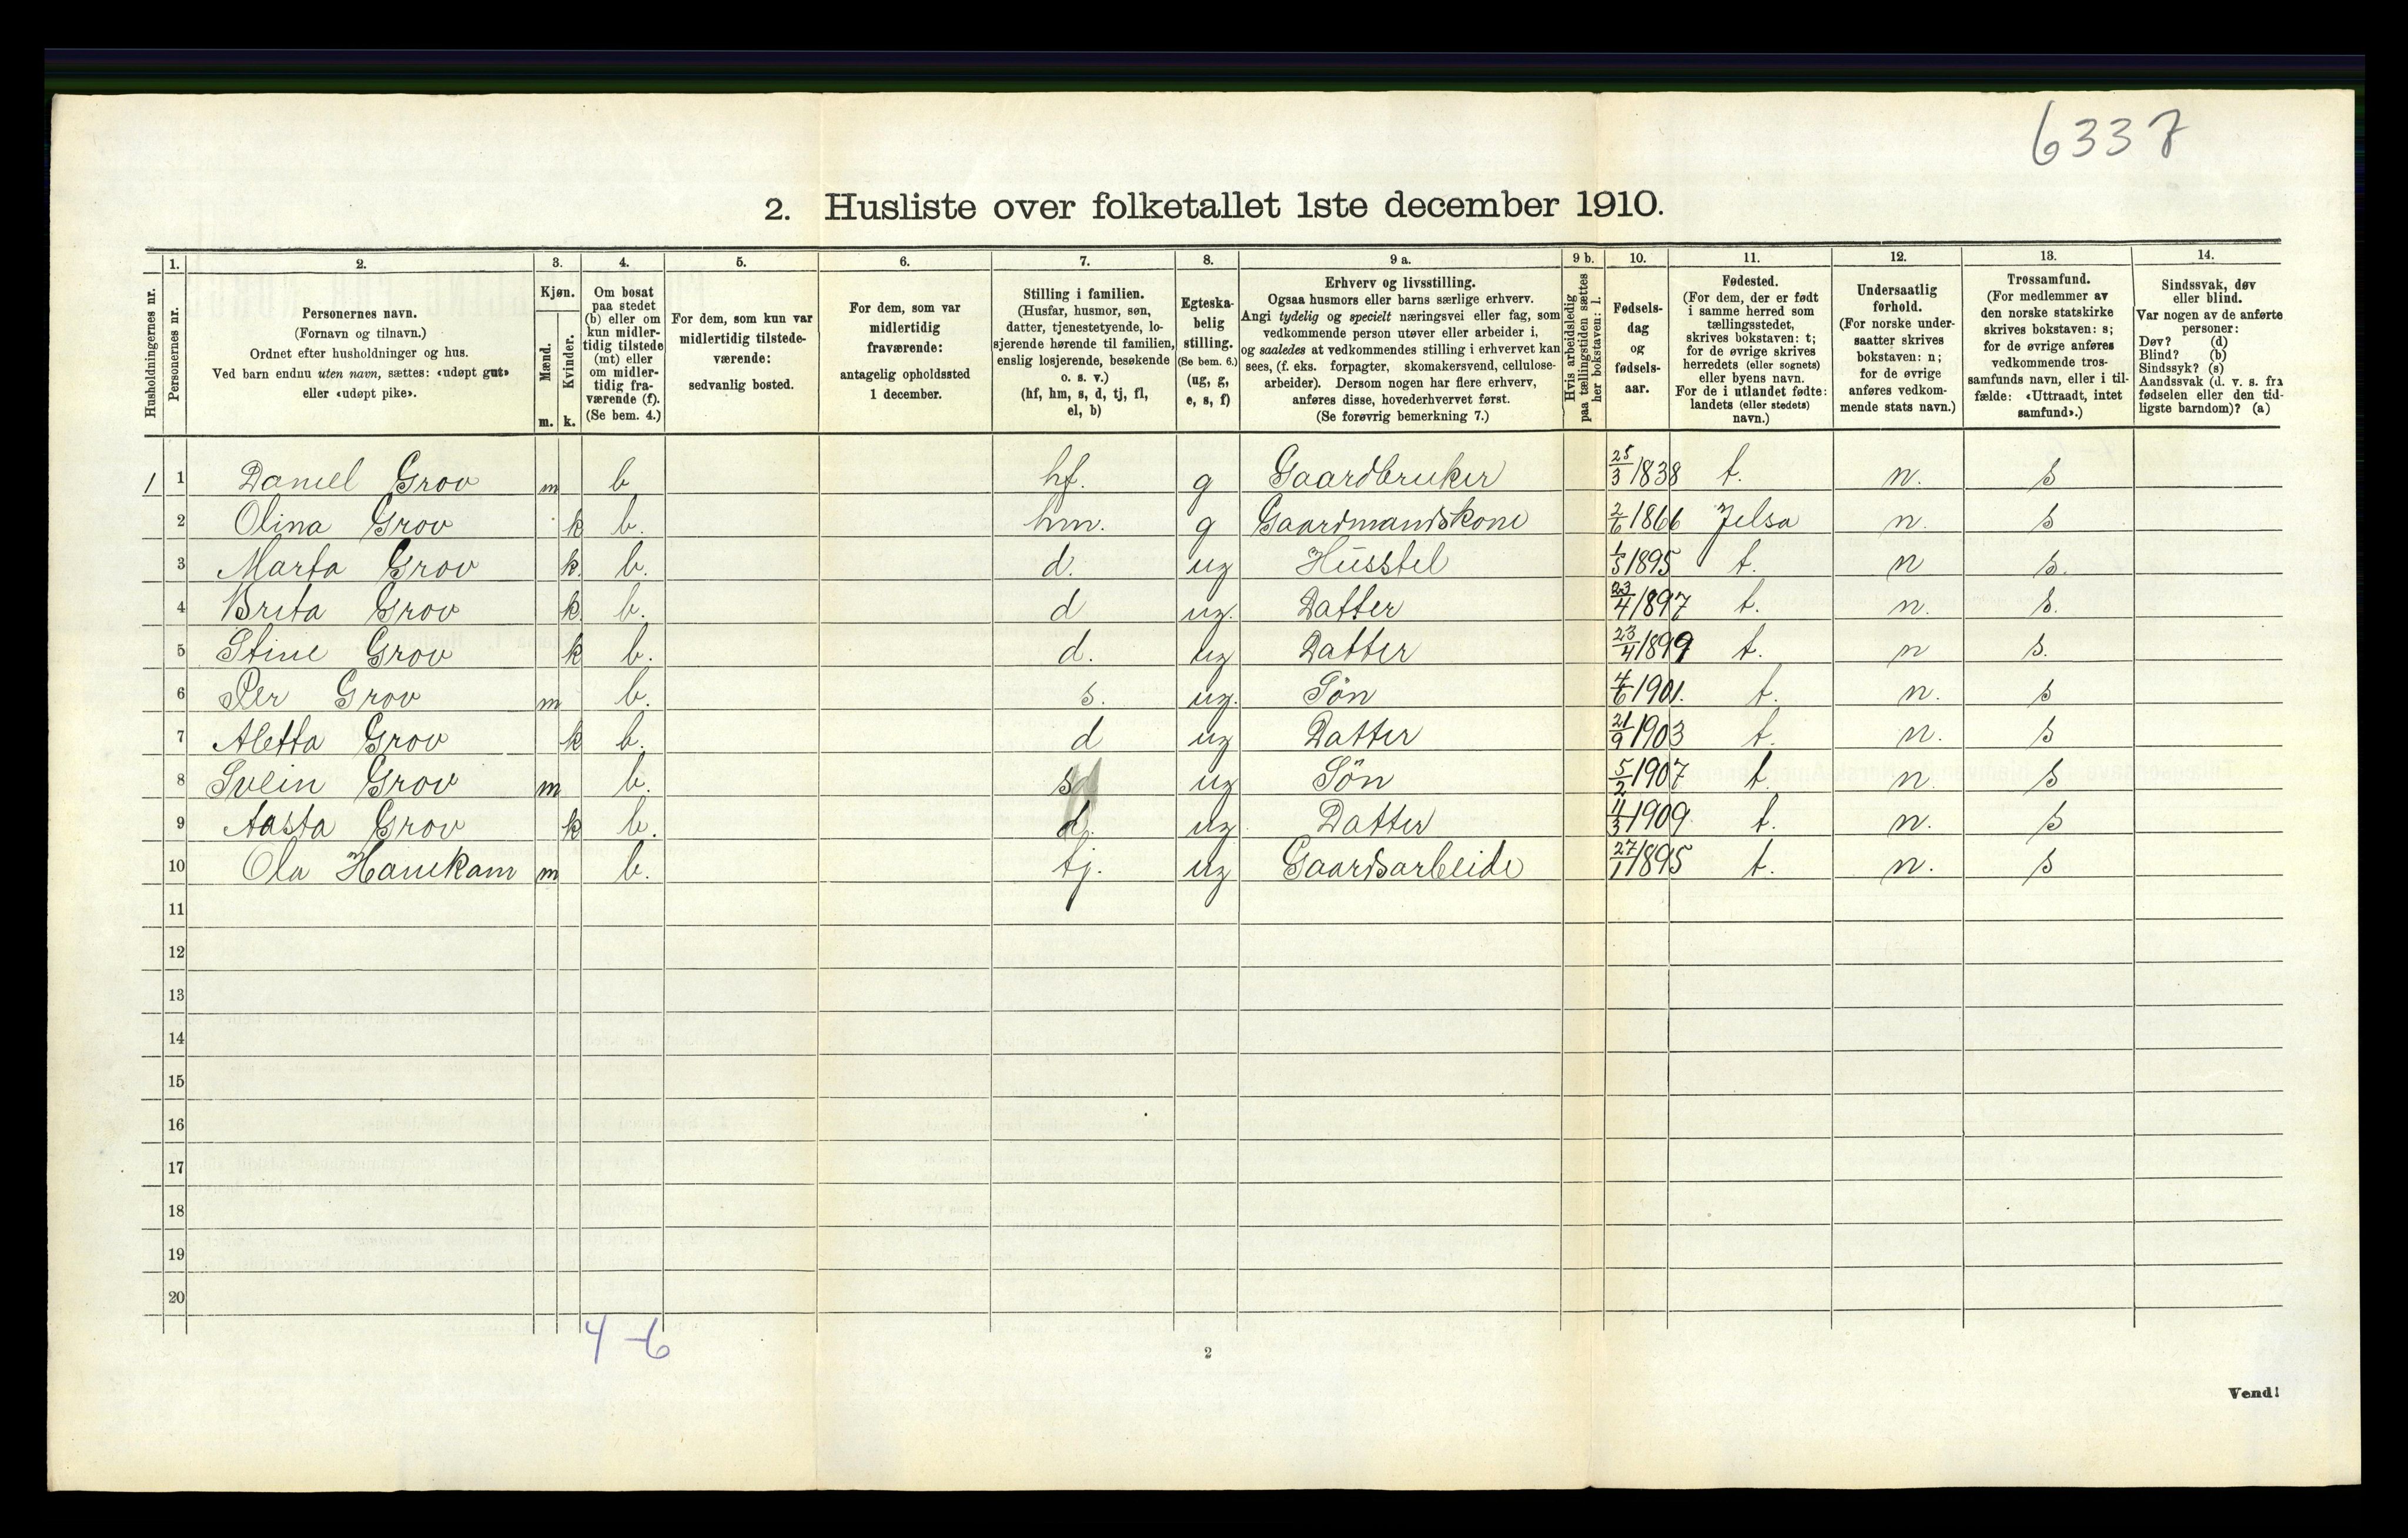 6337
2. Husliste over folketallet 1ste december 1910.
Husholdningernes nr.
1.
Personernes nr.
2.
Personernes navn.
(Fornavn og tilnavn.)
Ordnet efter husholdninger og hus.
Ved barn endnu uten navn, sættes: «udøpt gut»
eller «udøpt pike».
3.
Kjøn.
Mænd.
m.
Kvinder.
k.
4.
Om bosat
paa stedet
(b) eller om
kun midler-
tidig tilstede
(mt) eller
om midler-
tidig fra-
værende (f).
(Se bem. 4.)
5.
For dem, som kun var
midlertidig tilstede-
værende:
sedvanlig bosted.
6.
For dem, som var
midlertidig
fraværende:
antagelig opholdssted
1 december.
7.
Stilling i familien.
(Husfar, husmor, søn,
datter, tjenestetyende, lo-
sjerende hørende til familien,
enslig losjerende, besøkende
o. s. v.)
(hf, hm, s, d, tj, fl,
el, b)
8.
Egteska-
belig
stilling.
(Se bem. 6.)
(ug, g,
e, s, f)
9 a.
Erhverv og livsstilling.
Ogsaa husmors eller barns særlige erhverv.
Angi tydelig og specielt næringsvei eller fag, som
vedkommende person utøver eller arbeider i,
og saaledes at vedkommendes stilling i erhvervet kan
sees, (f. eks. forpagter, skomakersvend, cellulose-
arbeider). Dersom nogen har flere erhverv,
anføres disse, hovederhvervet først.
(Se forøvrig bemerkning 7.)
9 b.
Hvis arbeidsledig
paa tællingstiden sættes
her bokstaven: l.
10.
Fødsels-
dag
og
fødsels-
aar.
11.
Fødested.
(For dem, der er født
i samme herred som
tællingsstedet,
skrives bokstaven: t;
for de øvrige skrives
herredets (eller sognets)
eller byens navn.
For de i utlandet fødte:
landets (eller stedets)
navn.)
12.
Undersaatlig
forhold.
(For norske under-
saatter skrives
bokstaven: n;
for de øvrige
anføres vedkom-
mende stats navn.)
13.
Trossamfund.
(For medlemmer av
den norske statskirke
skrives bokstaven: s;
for de øvrige anføres
vedkommende tros-
samfunds navn, eller i til-
fælde: «Uttraadt, intet
samfund».)
14.
Sindssvak, døv
eller blind.
Var nogen av de anførte
personer:
Døv? (d)
Blind? (b)
Sindssyk? (s)
Aandssvak (d. v. s. fra
fødselen eller den tid-
ligste barndom)? (a)
1 1 Daniel Grov m b hf. g Gaardbruker 25/3 1838 t. n. s
2 Olina Grov k b. hm. g Gaardmandskone 2/6 1866 Jelsa n. s
3 Marta Grov k. b. d. ug Husstel 1/5 1895 t. n s.
4 Brita Grov k. b. d ug. Datter 23/4 1897 t. n. s.
5 Stine Grov k b. d. ug Datter 23/4 1899 t. n s.
6 Per Grov m b. s. ug. Søn 4/6 1901. t. n. s
7 Aletta Grov k b. d ug Datter 21/9 1903 t. n. s
8 Svein Grov m b. s ug Søn 5/2 1907 t. n. s
9 Aasta Grov k b. d. ug. Datter 11/3 1909 t. n. s
10 Ola Hanekam m b. tj. ug Gaardsarbeide 27/1 1895 t. n. s
11
12
13
14
15
16
17
18
19
20
4-6
2
Vend!